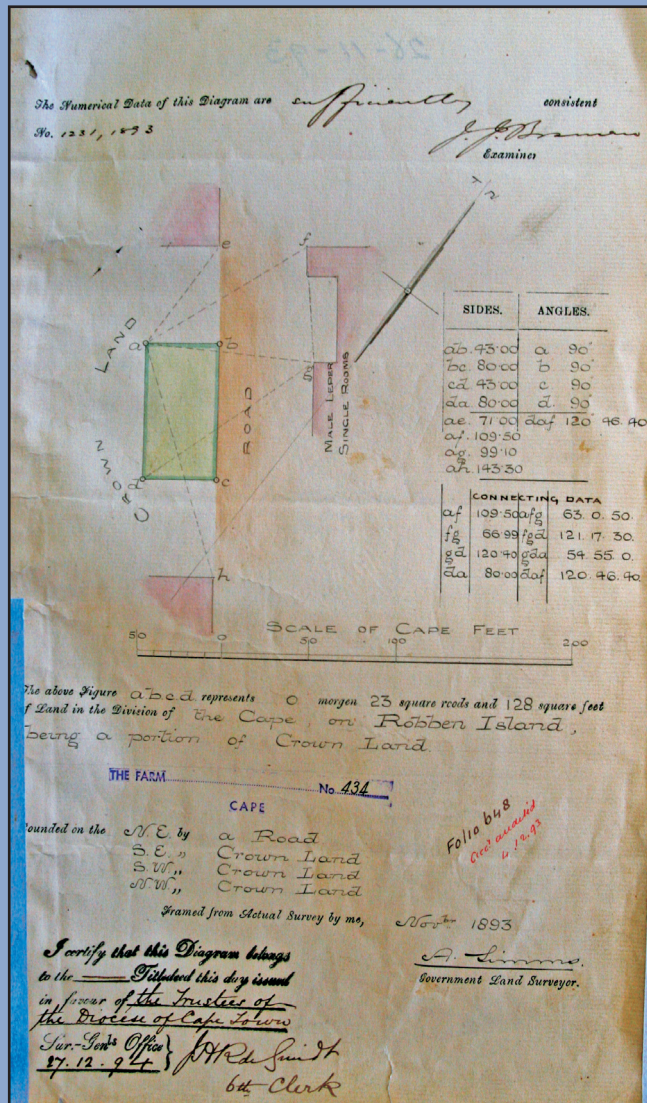 26-11-93
The Numerical Data of this Diagram are sufficiently consistent
No. 1231, 1893
Examiner
N
e
f
a
b
g
d
c
h
LAND
CROWN
ROAD
MALE LEPER
SINGLE ROOMS
SIDES. ANGLES.
ab. 43·00 a 90°
bc. 80·00 b 90°
cd. 43·00 c 90°
da. 80·00 d. 90°
ae. 71·00 daf 120° 46. 40
af. 109·50
ag. 99·10
ah. 143·30
CONNECTING DATA
af 109·50 afg 63. 0. 50.
fg 66·99 fgd 121. 17. 30.
gd 120·40 gda 54. 55. 0.
da 80·00 daf 120. 46. 40.
SCALE OF CAPE FEET
50 0 50 100 200
The above Figure a.b.c.d. represents 0 morgen 23 square roods and 128 square feet
of Land in the Division of the Cape, on Robben Island,
being a portion of Crown Land.
THE FARM No 434
CAPE
Folio 648
4.12.93
Bounded on the N.E. by a Road
S.E. ,, Crown Land
S.W. ,, Crown Land
N.W. ,, Crown Land
Framed from Actual Survey by me, Novbr 1893
A. Simms.
Government Land Surveyor.
I certify that this Diagram belongs
to the —— Titledeed this day issued
in favour of the Trustees of
the Diocese of Cape Town
Sur.-Genls Office
27.12.94
6th Clerk